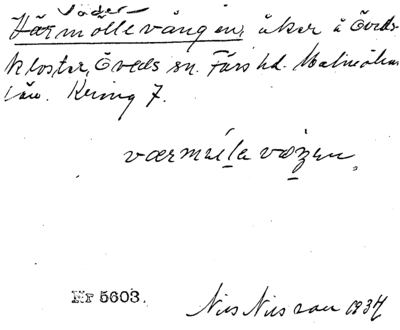 Söder-
Värmöllevången, åker å Öveds-
kloster, Öveds sn. Färs hd. Malmöhus
län. Kring 7.
værmɩ́la væŋen
Nr 5603.
Nils Nilsson 1934